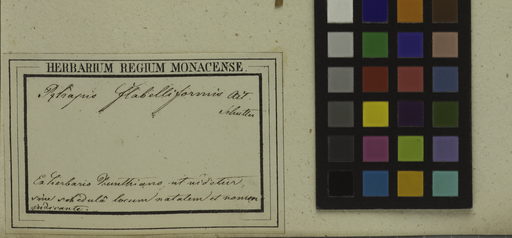 HERBARIUM REGIUM MONACENSE.
Rhapis flabelliformis Ait
Ex herbario Kunthiano, ut videtur,
sine schedula locum natalem et nomen
indicante.